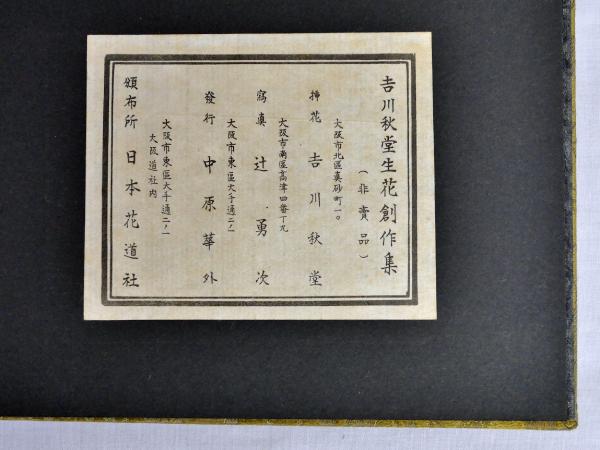 吉川秋堂生花創作集
(非賣品)
大阪市北區眞砂町一〇
挿花 吉川秋堂
大阪市南區高津四番丁九
寫眞 辻勇次
大阪市東區大手通二ノ一
發行 中原華外
大阪市東區大手通二ノ一
大阪道社内
頒布所 日本花道社